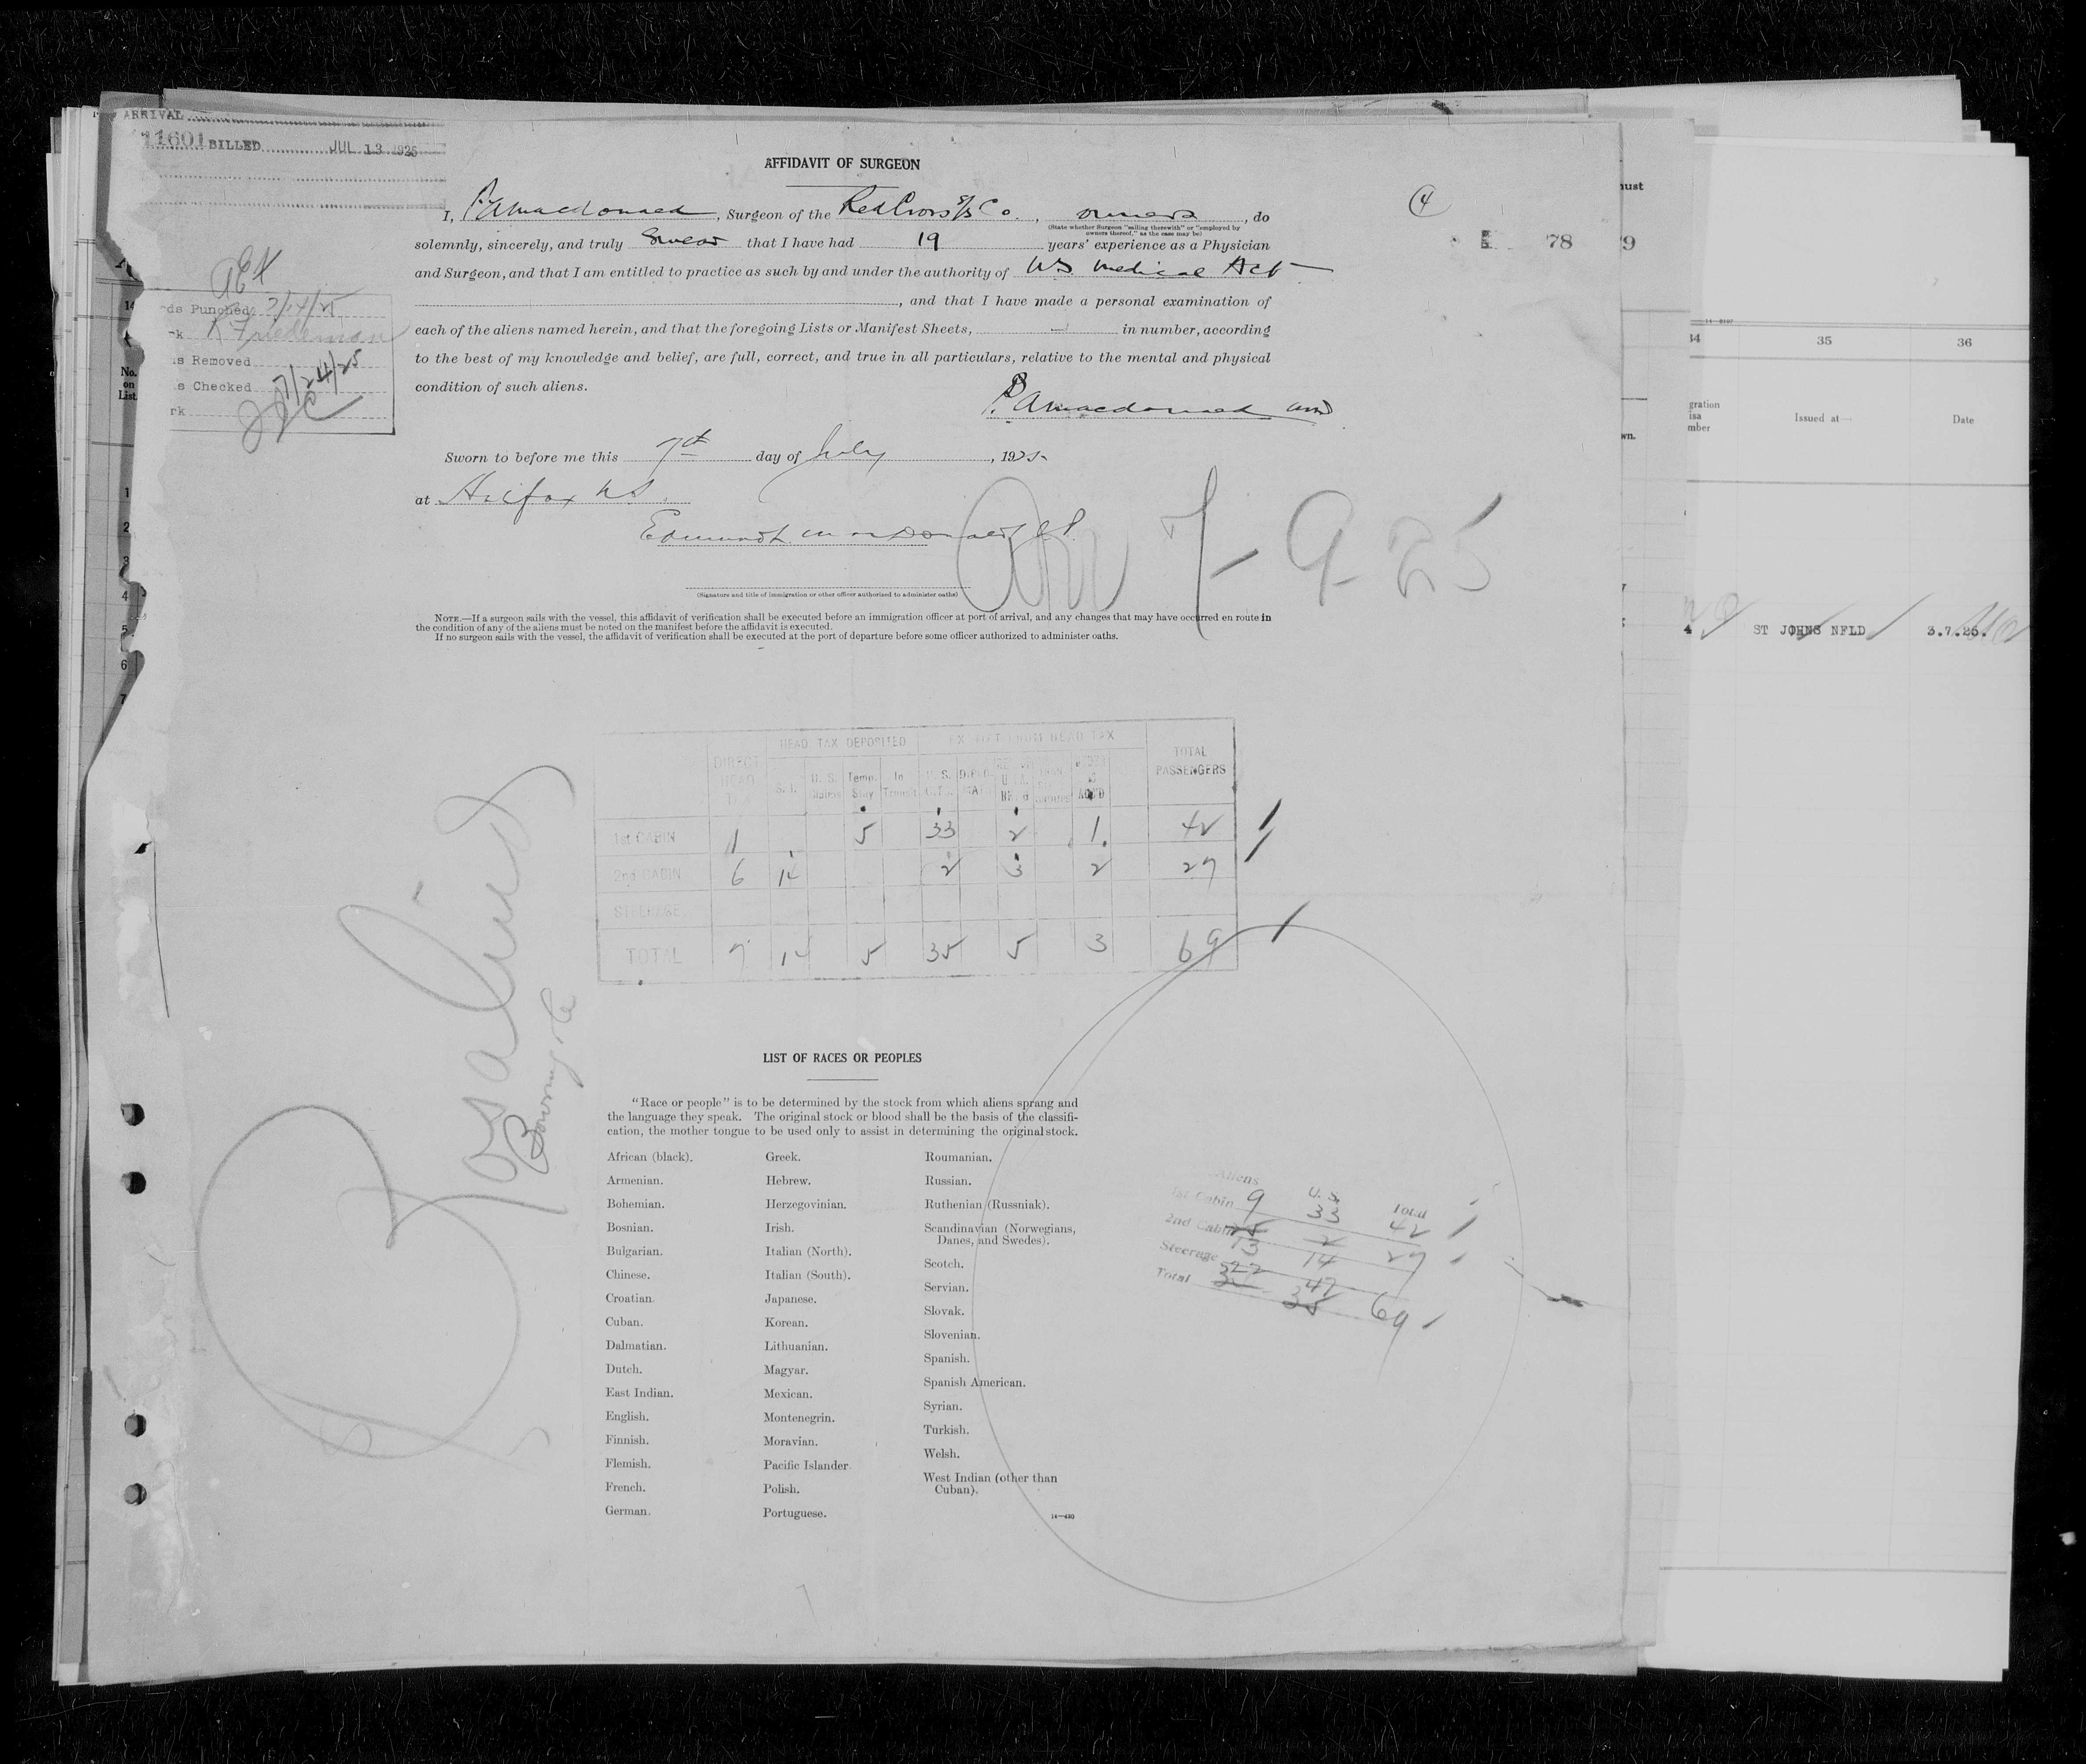 ARRIVAL
11601 BILLED JUL 13 1925
AFFIDAVIT OF SURGEON
I, P. A. Macdonald, Surgeon of the Red Cross S/S Co., owners, do
(State whether Surgeon "sailing therewith" or "employed by
owners thereof," as the case may be)
solemnly, sincerely, and truly Swear that I have had 19 years' experience as a Physician
and Surgeon, and that I am entitled to practice as such by and under the authority of NS Medical Act
, and that I have made a personal examination of
each of the aliens named herein, and that the foregoing Lists or Manifest Sheets, in number, according
to the best of my knowledge and belief, are full, correct, and true in all particulars, relative to the mental and physical
condition of such aliens.
P. A. Macdonald MD
Sworn to before me this 7th day of July, 1925
at Halifax N.S.
4
78 9
ds Punched 7/14/25
rk K Friedeman
s Removed
s Checked 7/24/25
rk
Arr 7-9-25
(Signature and title of immigration or other officer authorized to administer oaths)
NOTE.—If a surgeon sails with the vessel, this affidavit of verification shall be executed before an immigration officer at port of arrival, and any changes that may have occurred en route in
the condition of any of the aliens must be noted on the manifest before the affidavit is executed.
If no surgeon sails with the vessel, the affidavit of verification shall be executed at the port of departure before some officer authorized to administer oaths.
HEAD TAX DEPOSITED EXEMPT FROM HEAD TAX
DIRECT HEAD S.I. U. S. Claims Temp. Stay In Transit U. S. UNDER 16 ACC'D TOTAL PASSENGERS
1st CABIN 11 5 33 2 1 42
2nd CABIN 6 14 2 3 2 27
STEERAGE
TOTAL 7 14 5 35 5 3 69
Rosalind
Bowring & Co
LIST OF RACES OR PEOPLES
"Race or people" is to be determined by the stock from which aliens sprang and
the language they speak. The original stock or blood shall be the basis of the classifi-
cation, the mother tongue to be used only to assist in determining the original stock.
African (black).
Armenian.
Bohemian.
Bosnian.
Bulgarian.
Chinese.
Croatian.
Cuban.
Dalmatian.
Dutch.
East Indian.
English.
Finnish.
Flemish.
French.
German.
Greek.
Hebrew.
Herzegovinian.
Irish.
Italian (North).
Italian (South).
Japanese.
Korean.
Lithuanian.
Magyar.
Mexican.
Montenegrin.
Moravian.
Pacific Islander.
Polish.
Portuguese.
Roumanian.
Russian.
Ruthenian (Russniak).
Scandinavian (Norwegians,
Danes, and Swedes).
Scotch.
Servian.
Slovak.
Slovenian.
Spanish.
Spanish American.
Syrian.
Turkish.
Welsh.
West Indian (other than
Cuban).
14—430
Aliens U.S. Total
1st Cabin 9 33 42
2nd Cabin 13 14 27
Steerage
Total 22 47 69
No.
on
List
1
2
3
4
5
6
7
34 35 36
Issued at—
Date
ST JOHNS NFLD
3.7.25.